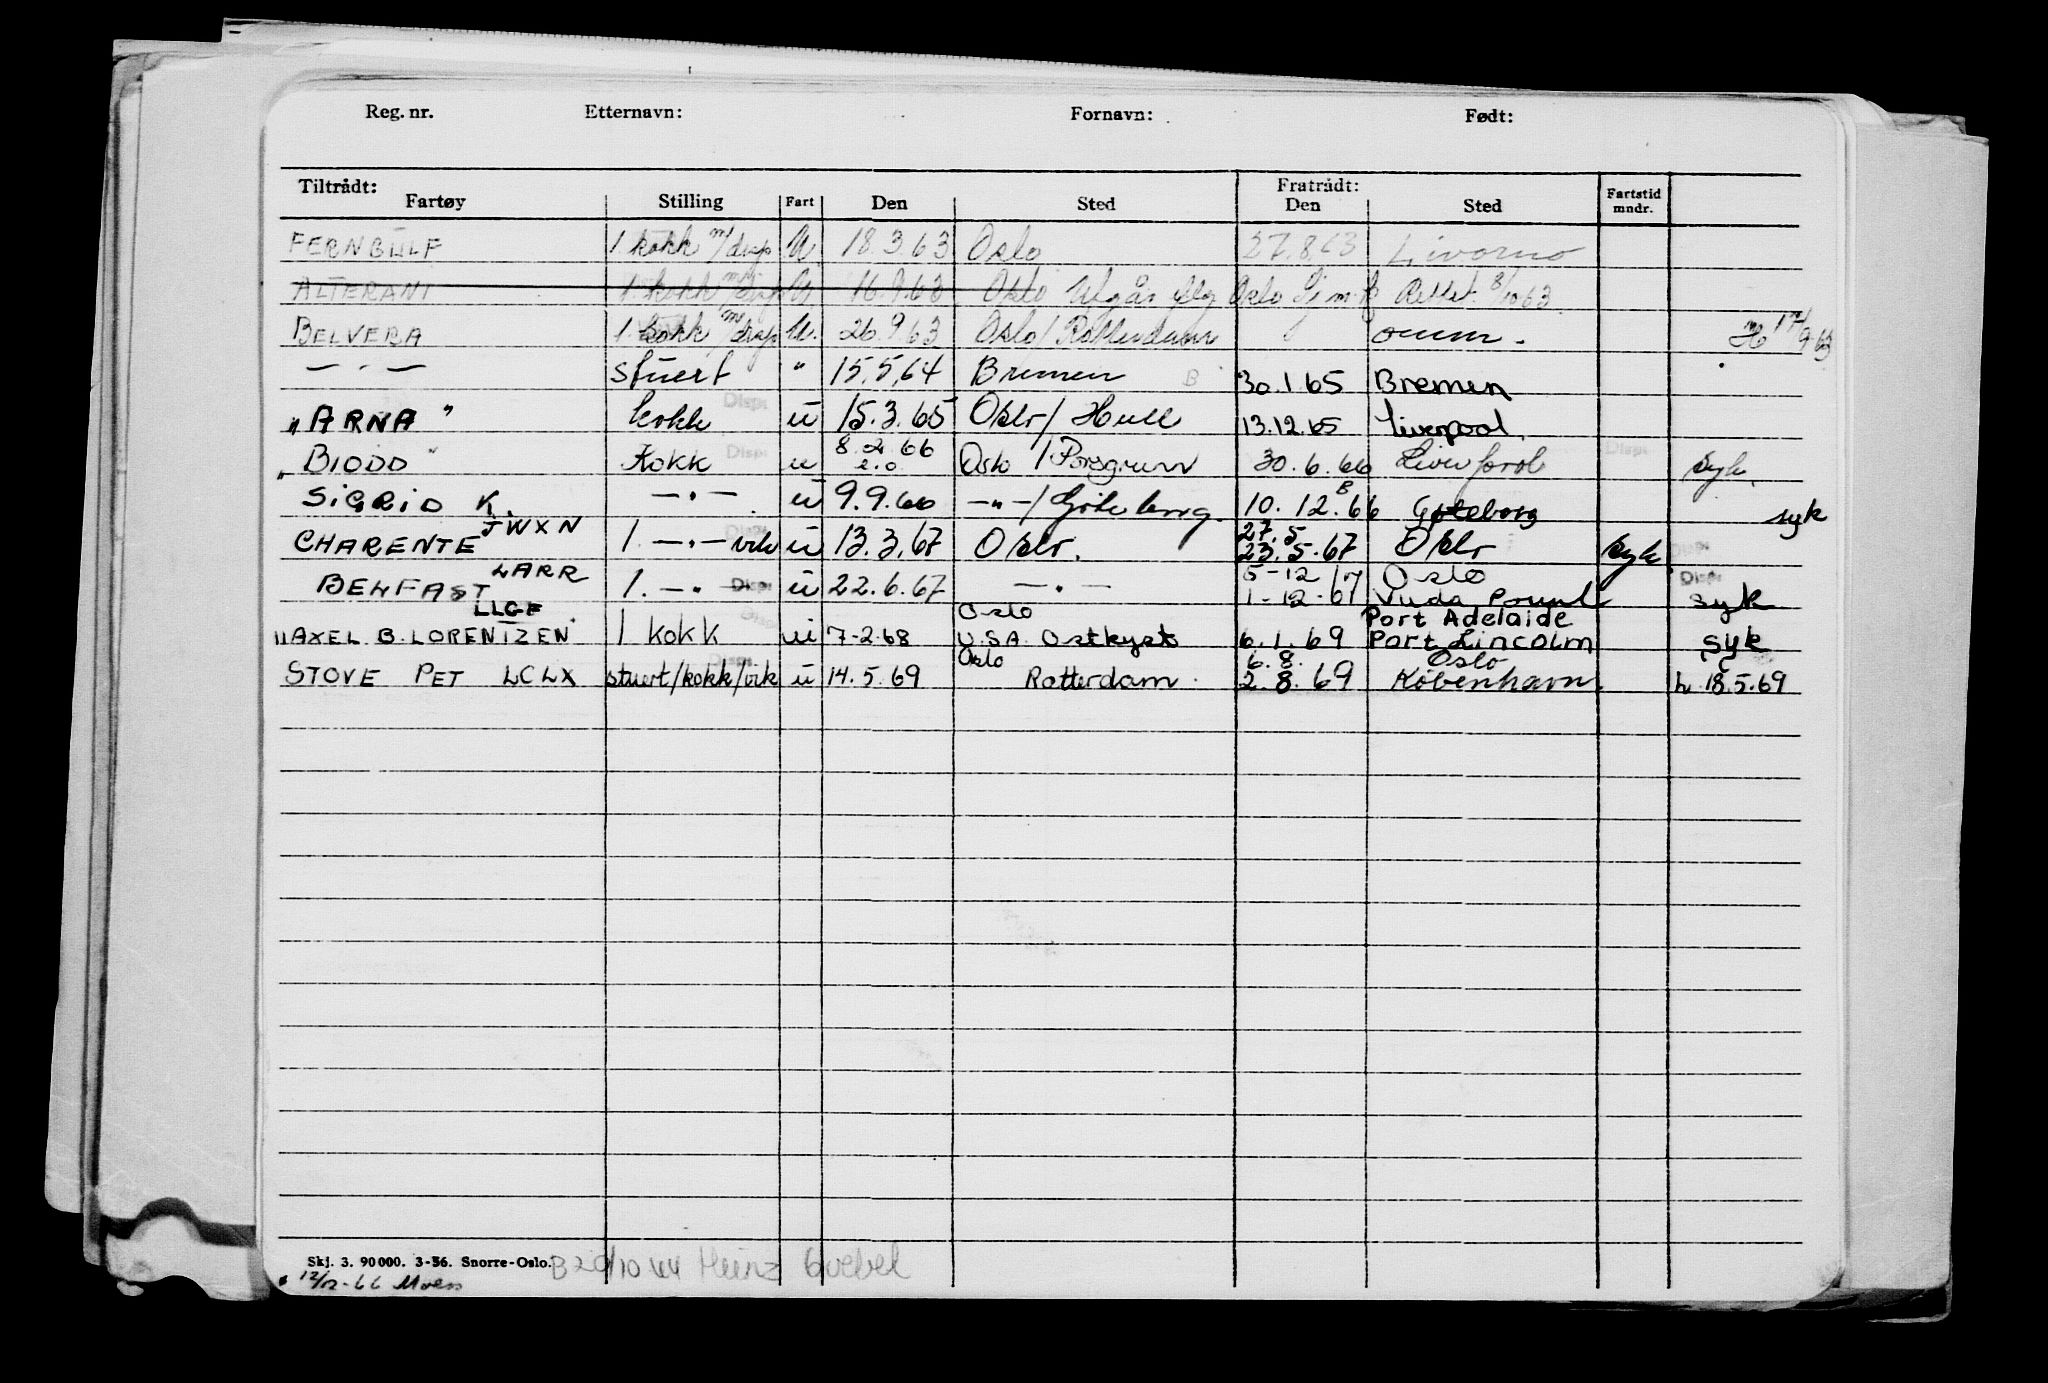 Reg. nr. Etternavn: Fornavn: Født:
Tiltrådt: Fratrådt: Fartstid
Fartøy Stilling Fart Den Sted Den Sted mndr.
FERNGULF 1 kokk m/disp U 18.3.63 Oslo 27.8.63 Livorno
ALTERANI 1 kokk m/disp U 16.9.63 Oslo Utgår iflg Oslo Sjm.k Rettet 8/10 63
BELVERA 1. kokk m/disp U. 26.9.63 Oslo/Rotterdam omm. 17/9 63
— " — stuert " 15.5.64 Bremen B 30.1.65 Bremen
"ARNA" kokk u 15.3.65 Oslo/Hull 13.12.65 Liverpool.
"BIODD" Kokk u 8.2.66 Oslo/Porsgrunn 30.6.66 Liverpool syk.
SIGRID K. — " — u 9.9.66 — " —/Göteborg. 10.12.66 Göteborg syk
JWXN 27.5
CHARENTE 1. — " — vik u 13.3.67 Oslo. 23.5.67 Oslo syk
LARR 5-12/67 Oslo
BELFAST 1. — " — u 22.6.67 — " — 1-12-67 syk
LLGF Oslo Port Adelaide
"AXEL B. LORENTZEN" 1 kokk u 7-2-68 U.S.A. Ostkyst 6.1.69 Port Lincolm syk
Oslo 6.8. Oslo
STOVE PET LCLX stuert/kokk/vik u 14.5.69 Rotterdam. 2.8.69 København. L 18.5.69
Skj. 3. 90 000. 3-56. Snorre-Oslo. B 20/10 44 Heinz Goebel
12/12-66 Moen